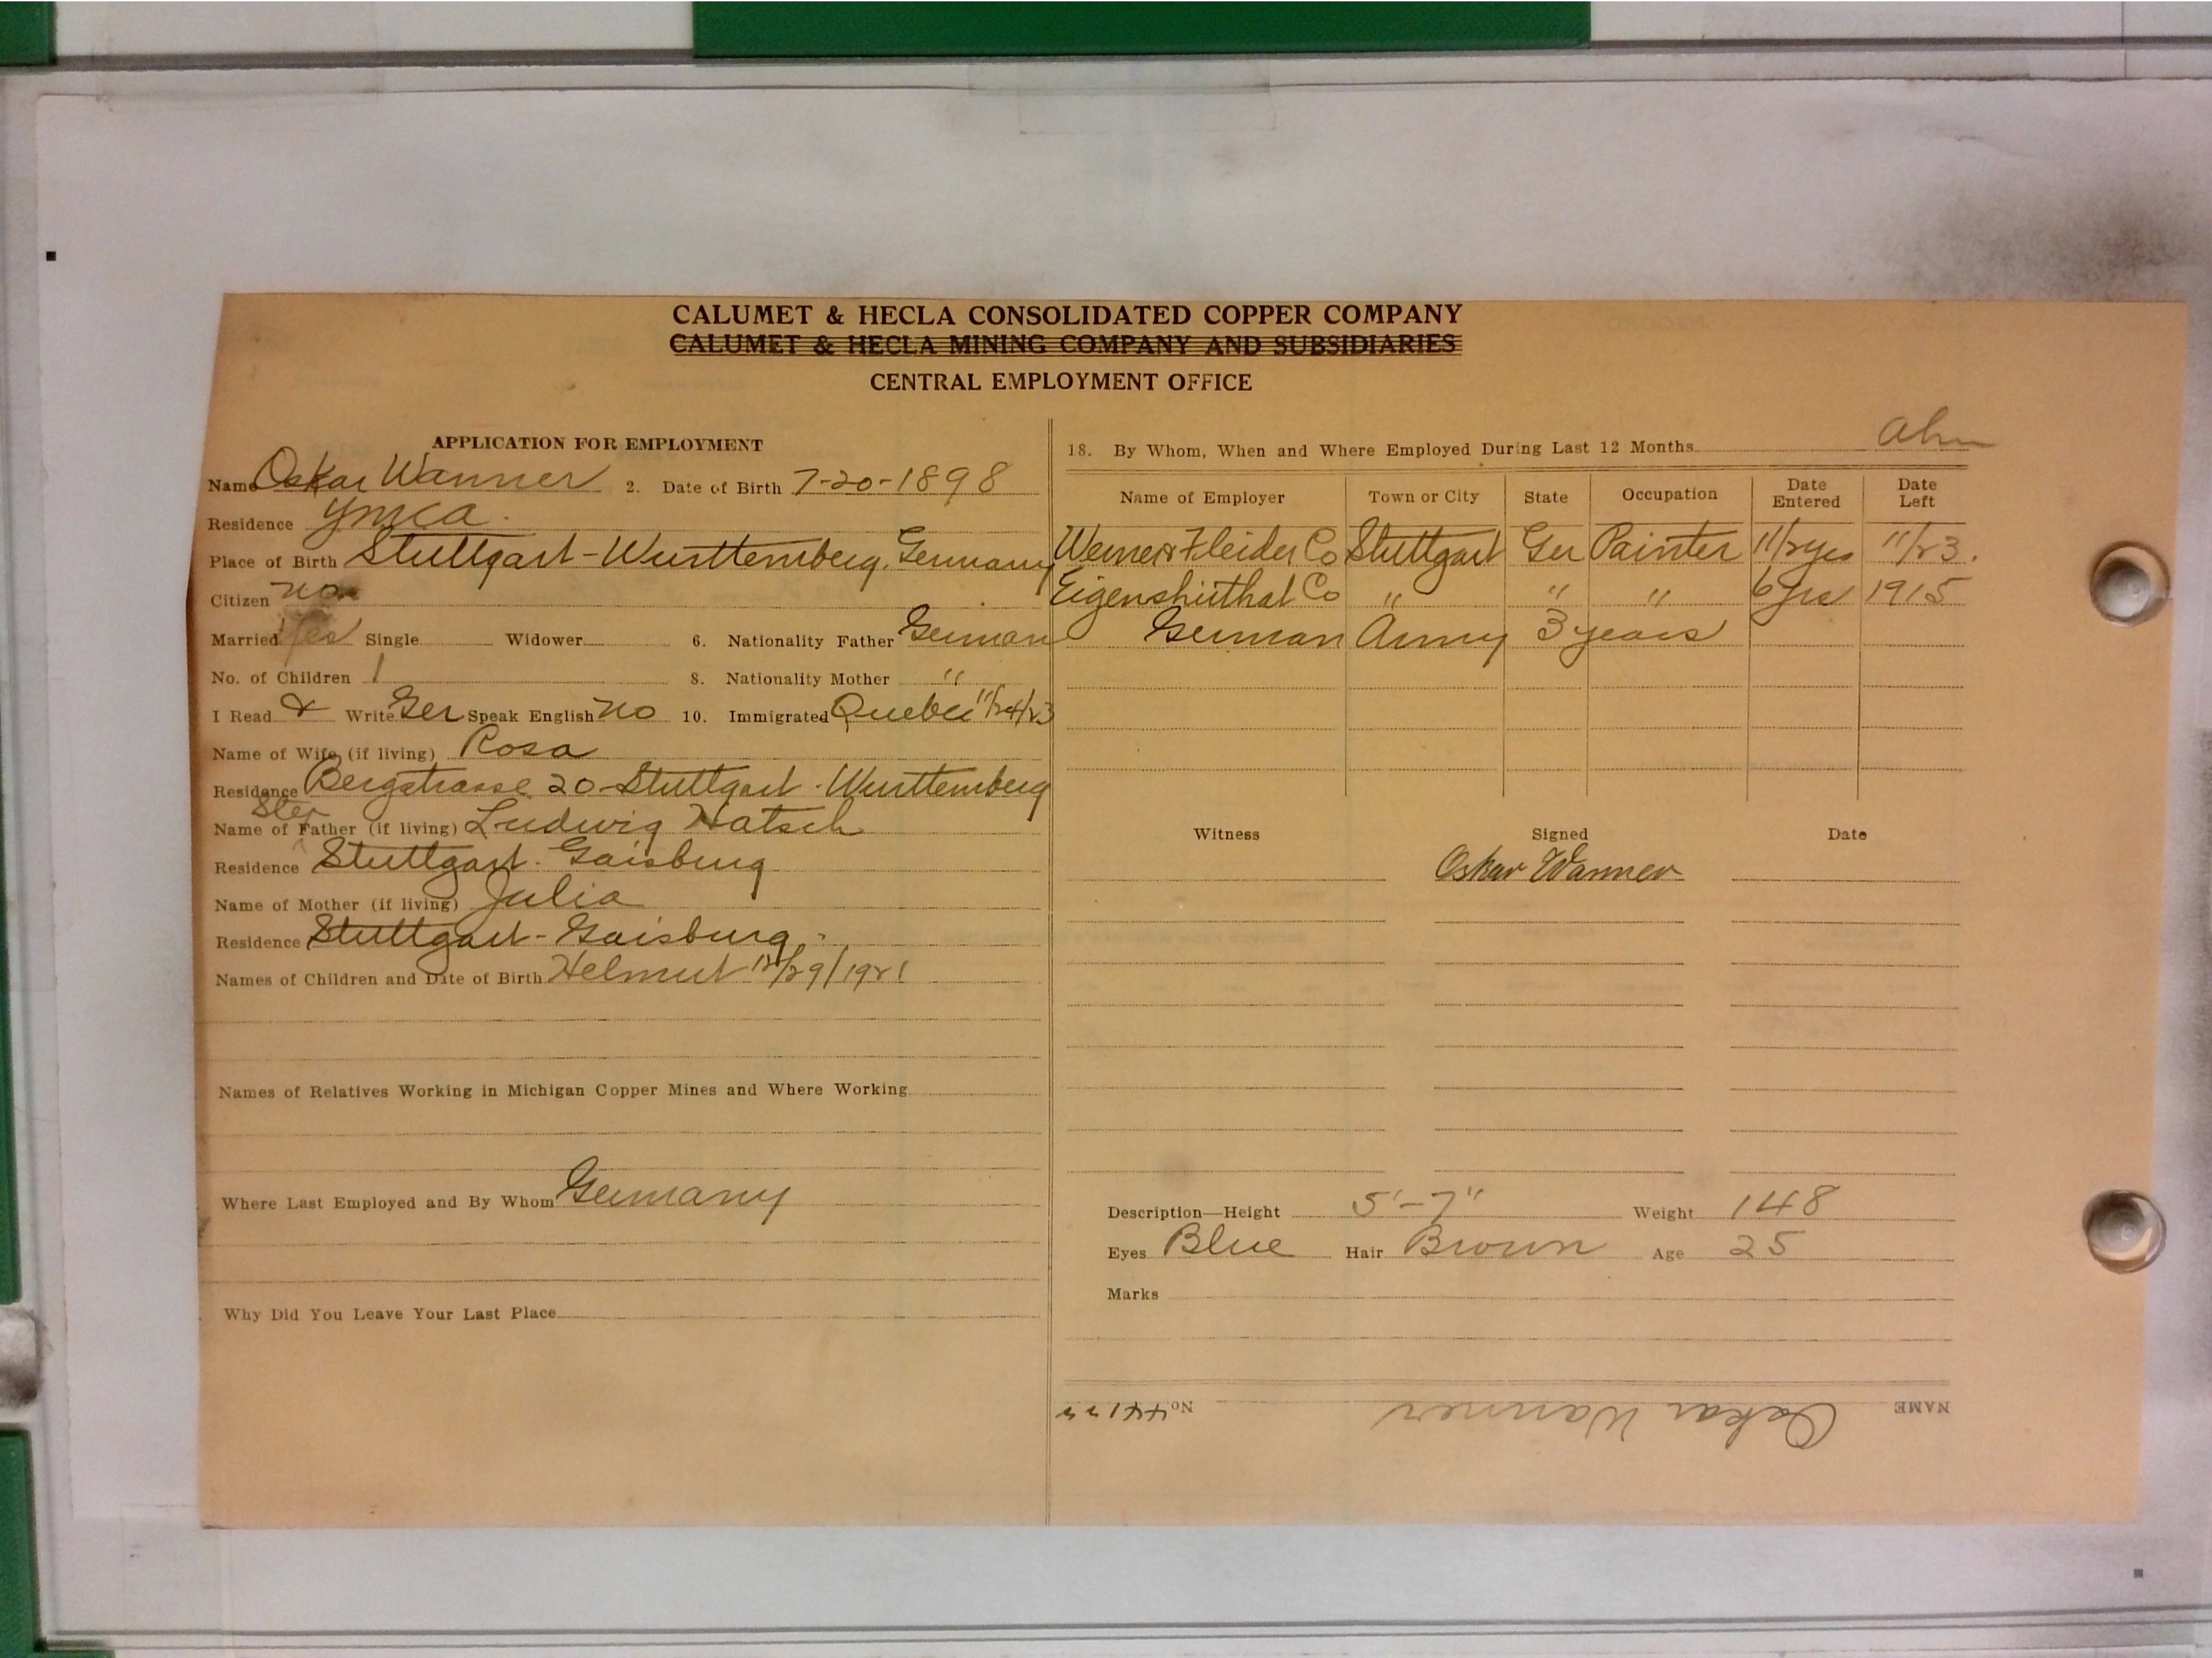 CALUMET & HECLA CONSOLIDATED COPPER COMPANY
CALUMET & HECLA MINING COMPANY AND SUBSIDIARIES
CENTRAL EMPLOYMENT OFFICE
APPLICATION FOR EMPLOYMENT
Name Oskar Wanner 2. Date of Birth 7-20-1898
Residence YMCA.
Place of Birth Stuttgart-Wurttemberg, Germany
Citizen no
Married Yes Single Widower 6. Nationality Father German
No. of Children 1 8. Nationality Mother "
I Read & Write Ger Speak English no 10. Immigrated Quebec 11/24/23
Name of Wife (if living) Rosa
Residence Bergstrasse 20-Stuttgart-Wurttemberg
Step
Name of Father (if living) Ludwig Hatsch
Residence Stuttgart-Gaisburg
Name of Mother (if living) Julia
Residence Stuttgart-Gaisburg
Names of Children and Date of Birth Helmut 12/29/1921
Names of Relatives Working in Michigan Copper Mines and Where Working
Where Last Employed and By Whom Germany
Why Did You Leave Your Last Place
18. By Whom, When and Where Employed During Last 12 Months
Name of Employer Town or City State Occupation Date Entered Date Left
Werner & Fleider Co Stuttgart Ger Painter 11/2 yrs 11/23.
Co " " " 6 yrs 1915
German Army 3 years
Witness Signed Date
Oskar Wanner
Description—Height 5'-7" Weight 148
Eyes Blue Hair Brown Age 25
Marks
NAME Oskar Wanner No.